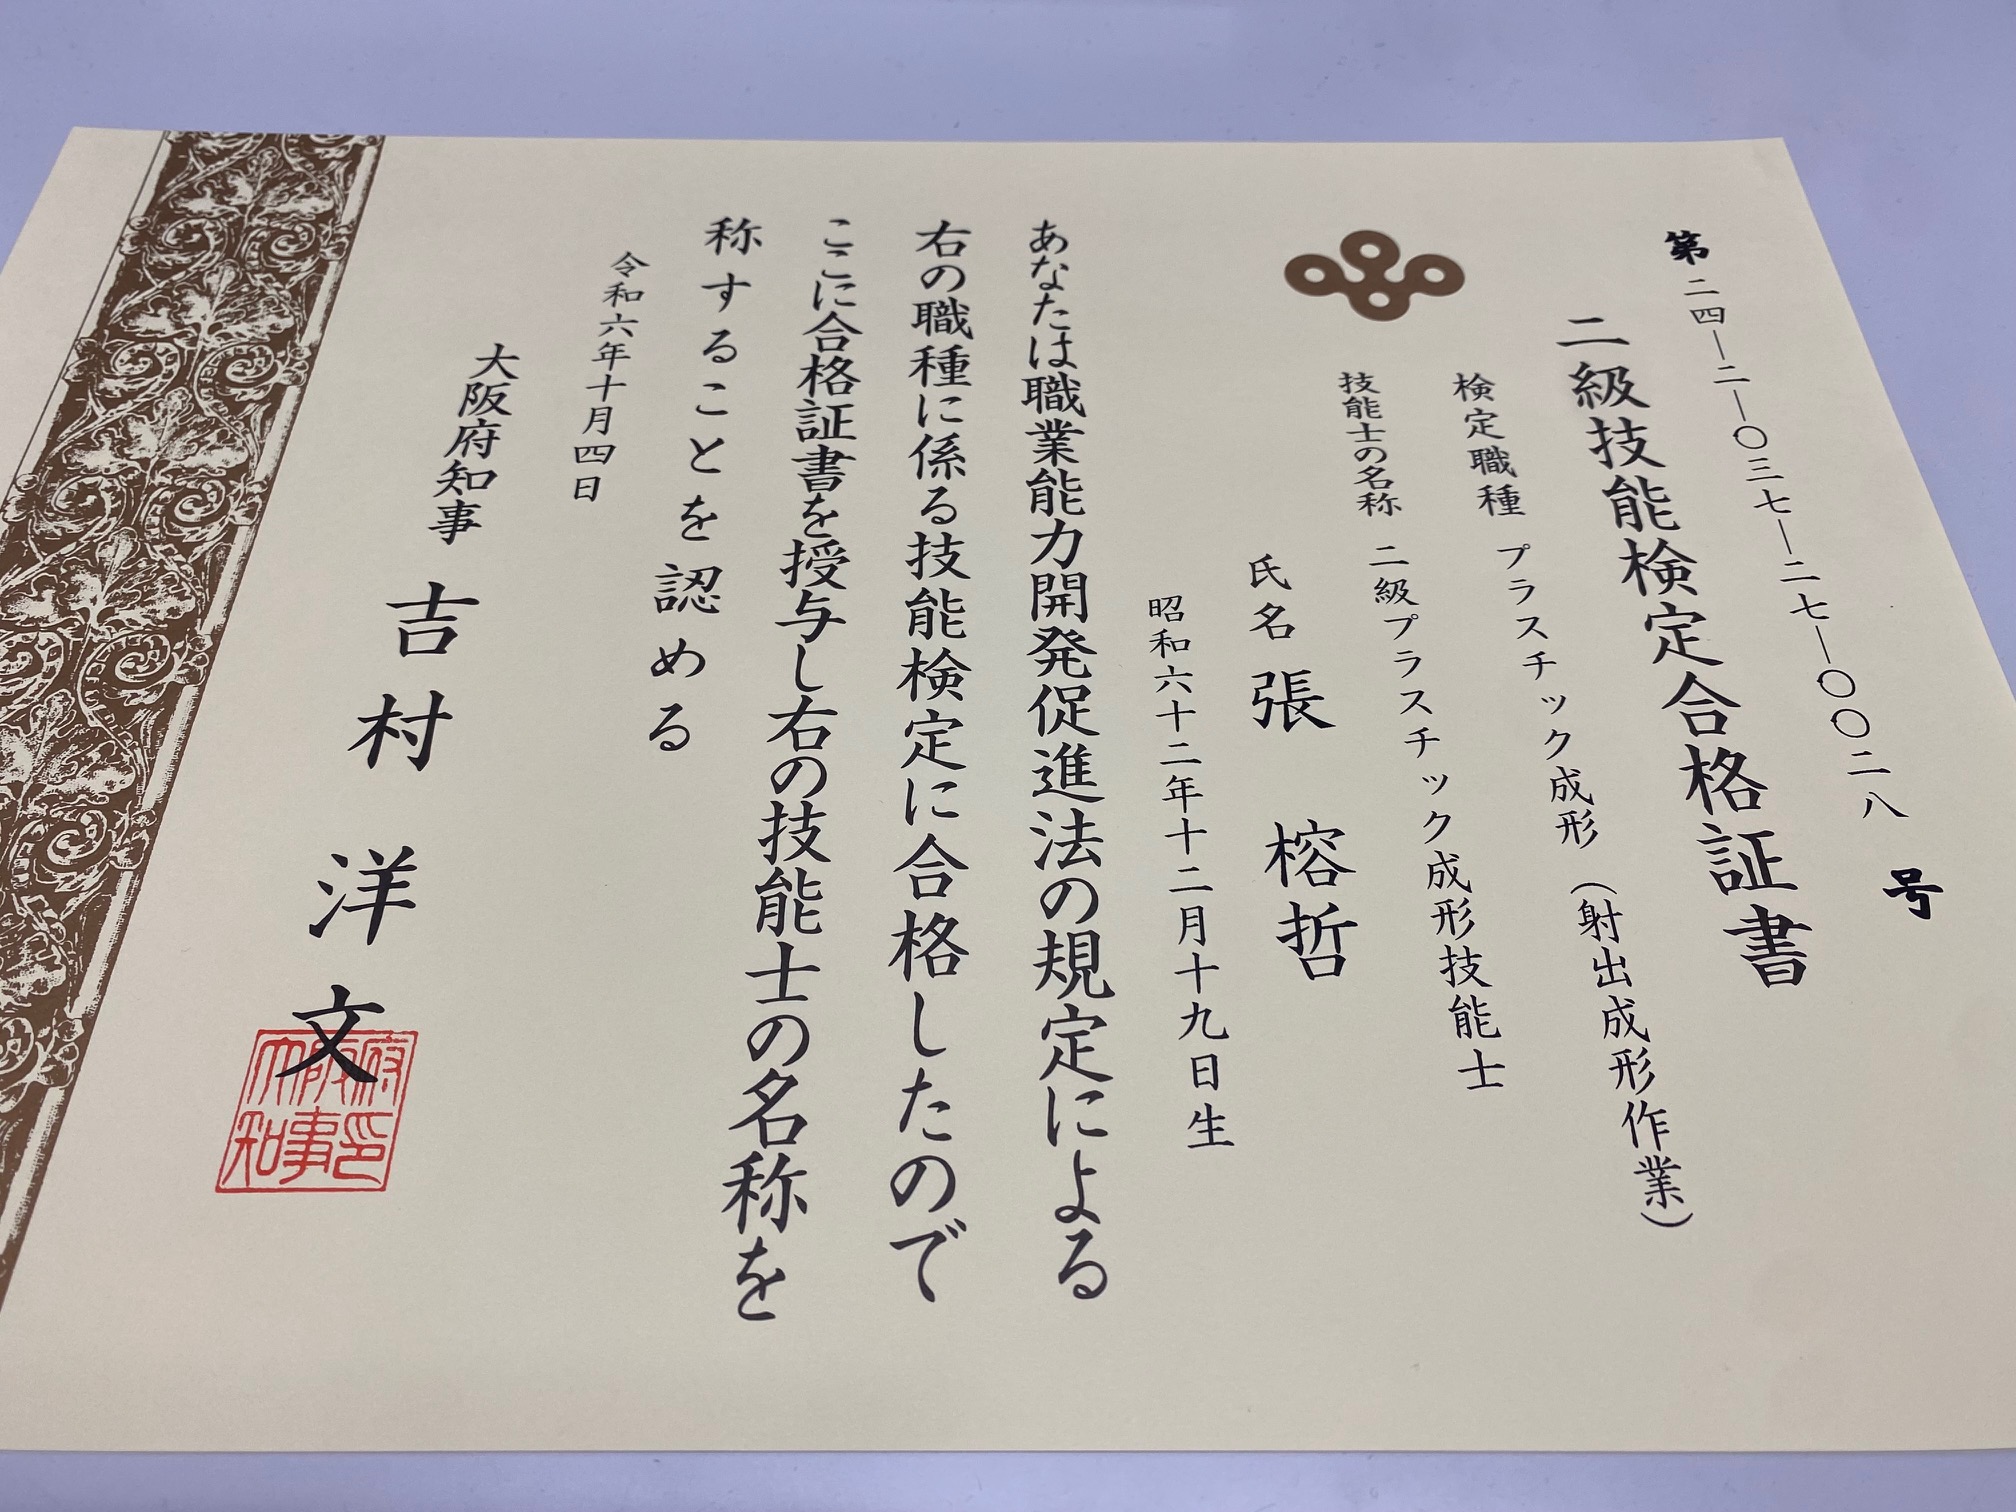 第二四―二―〇三七―二七―〇〇二八号
二級技能検定合格証書
検定職種 プラスチック成形（射出成形作業）
技能士の名称 二級プラスチック成形技能士
氏名 張 榕哲
昭和六十二年十二月十九日生
あなたは職業能力開発促進法の規定による
右の職種に係る技能検定に合格したので
ここに合格証書を授与し右の技能士の名称を
称することを認める
令和六年十月四日
大阪府知事 吉村洋文
大阪府
知事印